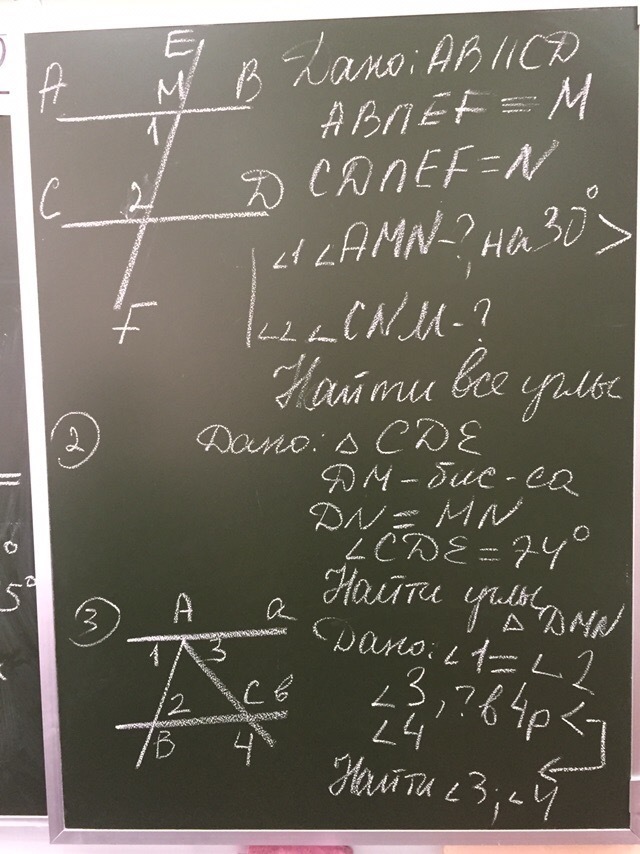 E
A M B
1
C 2 D
F
Дано: AB || CD
AB ∩ EF = M
CD ∩ EF = N
∠1 ∠AMN - ?, на 30° >
∠2 ∠CNM - ?
Найти все углы
②
Дано: △ CDE
DM - бис-са
DN = MN
∠CDE = 74°
Найти углы
△ DMN
③
A a
1 3
2 C в
B 4
Дано: ∠1 = ∠2
∠3, ? в 4р <
∠4
Найти ∠3; ∠4
5°